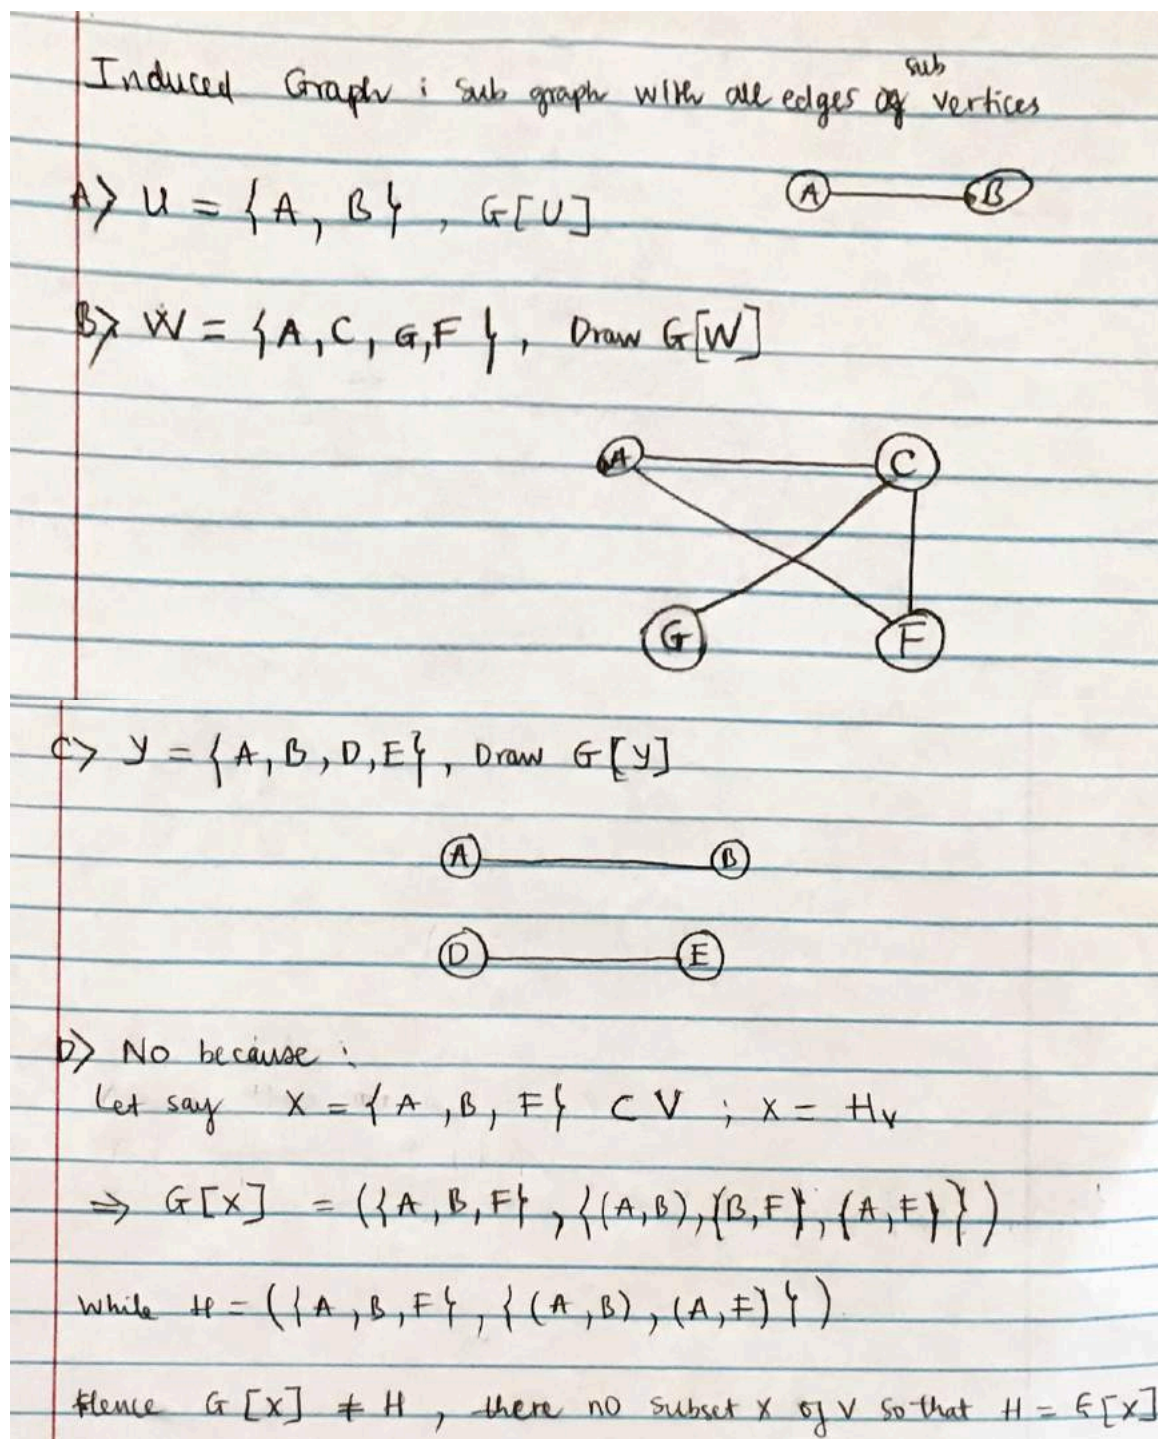 sub
Induced Graph : sub graph with all edges of vertices
A> U = {A, B}, G[U]
A B
B> W = {A, C, G, F}, Draw G[W]
A C
G F
C> Y = {A, B, D, E}, Draw G[Y]
A B
D E
D> No because :
Let say X = {A, B, F} ⊂ V ; X = Hv
⇒ G[X] = ({A, B, F}, {(A,B), {B,F}, {A,F)}})
While H = ({A, B, F}, {(A, B), (A, F)})
Hence G[X] ≠ H, there no subset X of V so that H = G[X]